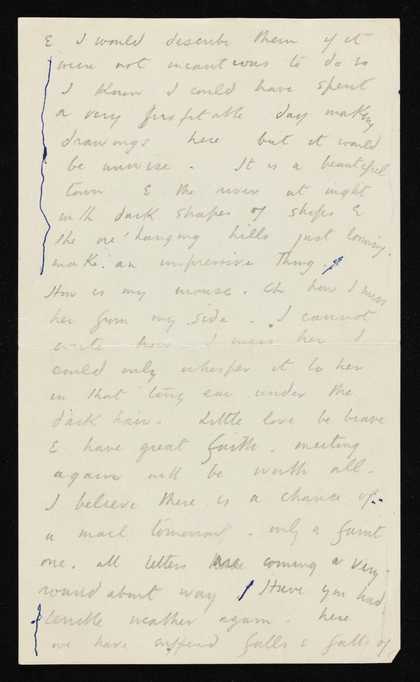 & I would describe them if it
were not incautious to do so
I know I could have spent
a very profitable day making
drawings here but it would
be unwise. It is a beautiful
town & the river at night
with dark shapes of ships &
the over hanging hills just looming.
make an impressive thing.
How is my mouse. Oh how I miss
her from my side. I cannot
write how I miss her I
could only whisper it to her
in that tiny ear under the
dark hair. Little love be brave
& have great faith. meeting
again will be worth all.
I believe there is a chance of
a mail tomorrow. only a faint
one. all letters are coming a very
round about way. Have you had
terrible weather again. here
we have suffered falls & falls of